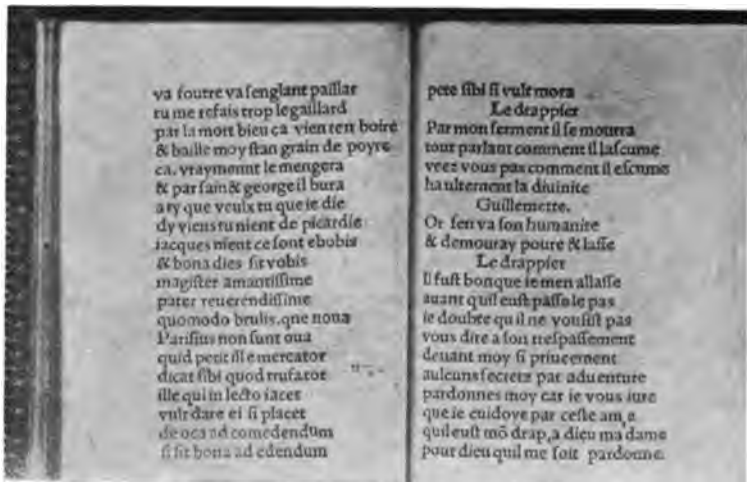 va foutre va senglant paillar
tu me refais trop le gaillard
par la mort bieu ca vien ten boire
& baille moy stan grain de poyre
ca. vrayment le mengera
& par sain & george il bura
a ty que veulx tu que ie die
dy viens tu nient de picardie
iacques nient ce sont ebobis
& bona dies sit vobis
magister amantissime
pater reuerendissime
quomodo brulis. que noua
Parisius non sunt oua
quid petit ille mercator
dicat sibi quod trufator
ille qui in lecto iacet
vult dare ei si placet
de oca ad comedendum
si sit bona ad edendum
pete sibi si vult mora
Le drappier
Par mon serment il se mourra
tout parlant comment il lascume
veez vous pas comment il escume
haultement la diuinite
Guillemette.
Or sen va son humanite
& demouray poure & lasse
Le drappier
Il fust bon que ie men allasse
auant quil eust passe le pas
ie doubte qu il ne voulsist pas
vous dire a son trespassement
deuant moy si priueement
aulcuns secretz par aduenture
pardonnes moy car ie vous iure
que ie cuidoye par ceste ame
quil eust mõ drap, a dieu ma dame
pour dieu quil me soit pardonne.